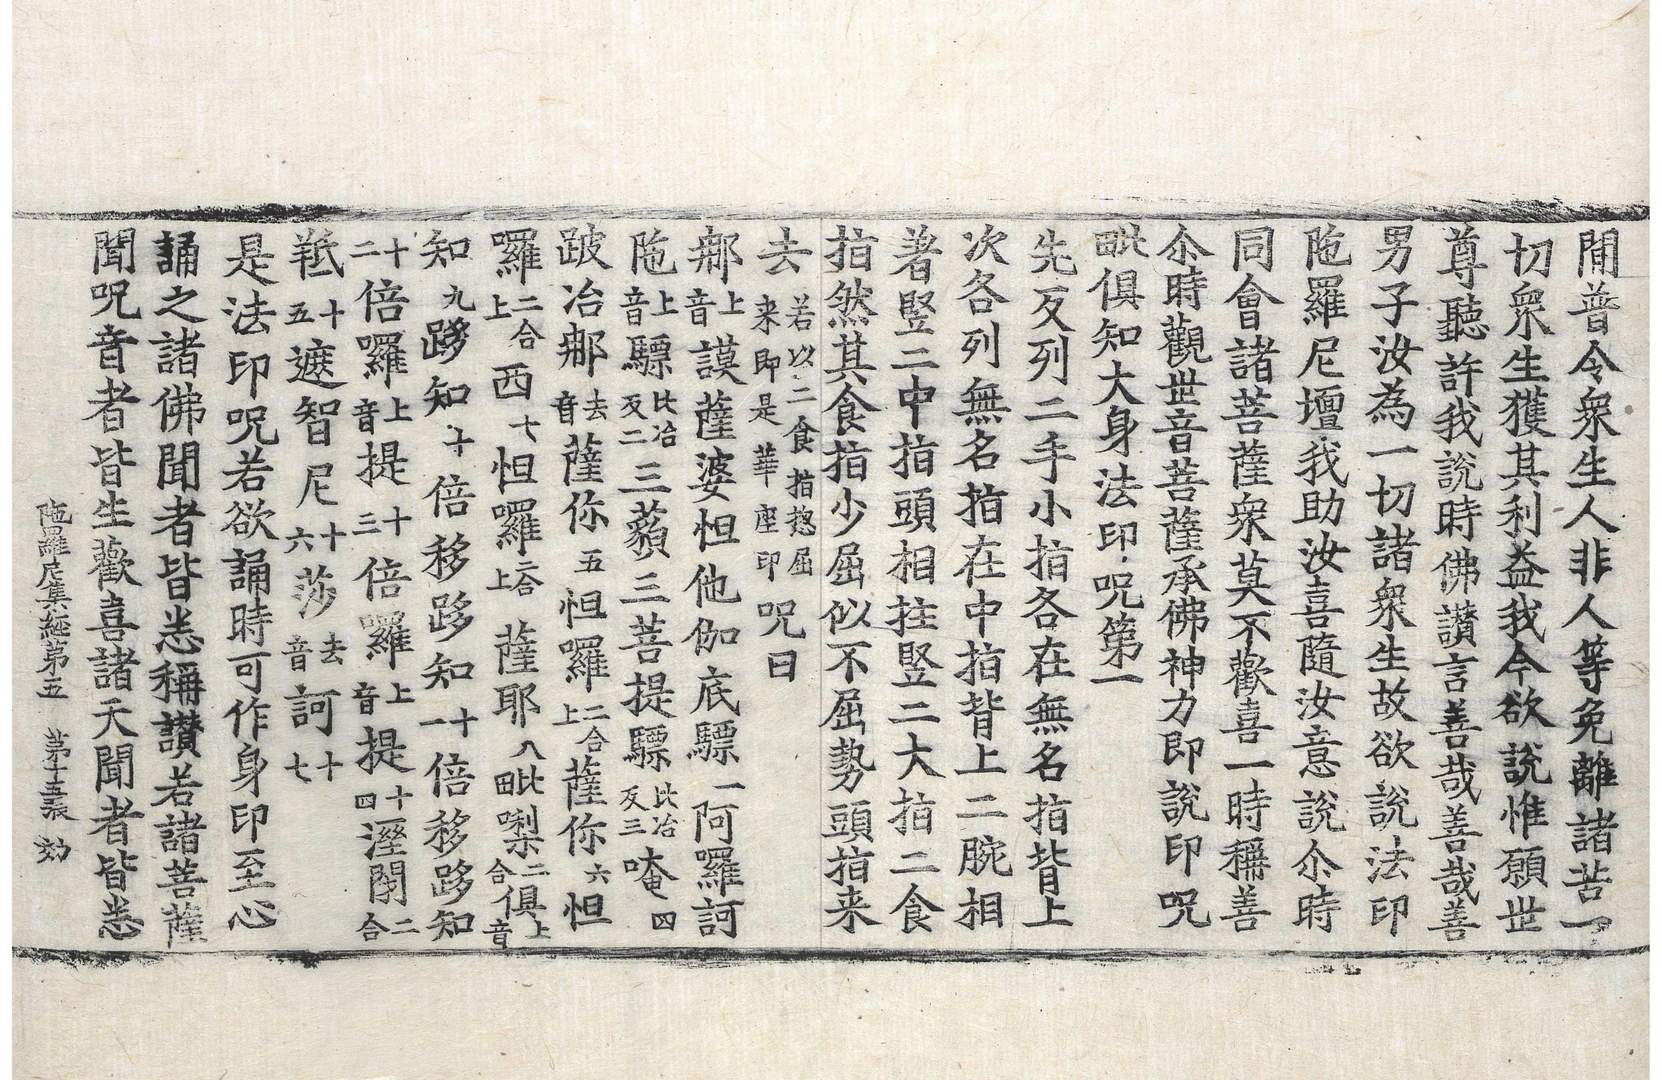 閒普令衆生人非人等免離諸苦一
切衆生獲其利益我今欲說惟願世
尊聽許我說時佛讃言善哉善哉善
男子汝為一切諸衆生故欲說法印
陁羅尼壇我助汝喜隨汝意說尒時
同會諸菩薩衆莫不歡喜一時稱善
尒時觀世音菩薩承佛神力即說印呪
毗俱知大身法印呪第一
先反列二手小指各在無名指背上
次各列無名指在中指背上二腕相
著竪二中指頭相拄竪二大指二食
指然其食指少屈似不屈勢頭指来
去若以二食指揔屈来即是華座印呪曰
那上音謨薩婆怛他伽底驃一阿囉訶
陁上音驃比冶反二三藐三菩提驃比冶反三唵四
跛冶那去音薩你五怛囉二合上薩你六怛
囉二合上西七怛囉二合上薩耶八毗唎二合俱上音
知九跢知十倍移跢知十一倍移跢知
十二倍囉上音提十三倍囉上音提十四溼閇二合
羝十五遮智尼十六莎去音訶十七
是法印呪若欲誦時可作身印至心
誦之諸佛聞者皆悉稱讃若諸菩薩
聞呪音者皆生歡喜諸天聞者皆悉
陁羅尼集經第五　第十五張　効